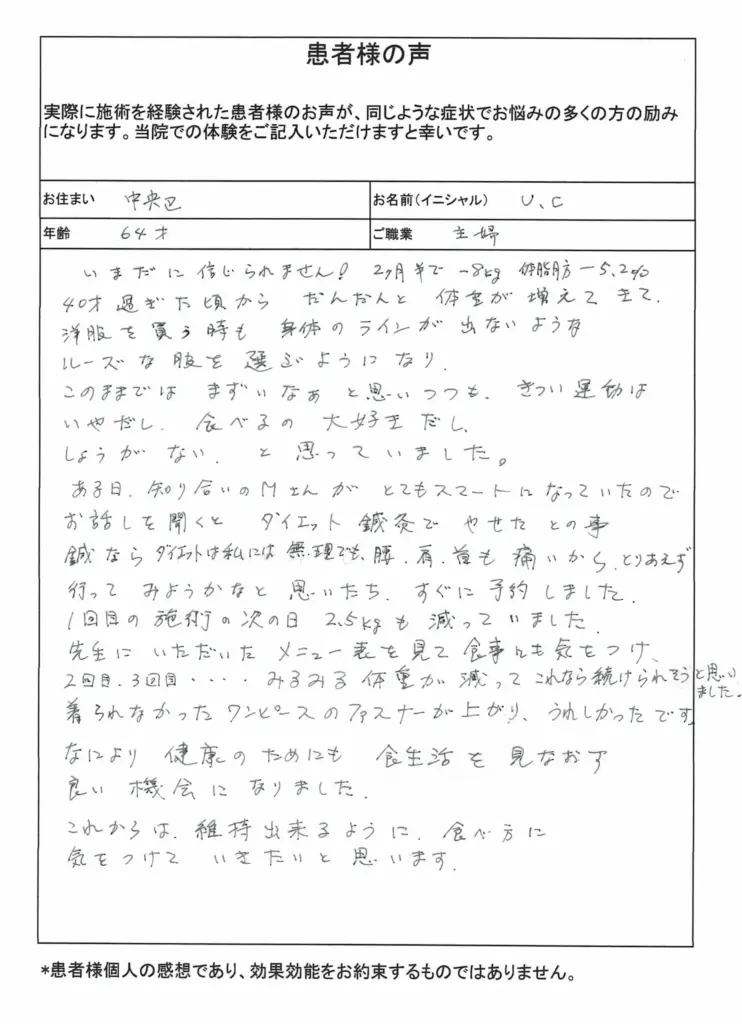 患者様の声
実際に施術を経験された患者様のお声が、同じような症状でお悩みの多くの方の励み
になります。当院での体験をご記入いただけますと幸いです。
お住まい 中央区 お名前(イニシャル) U、C
年齢 64才 ご職業 主婦
いまだに信じられません! 2ヶ月半で -8kg 体脂肪 -5.2%
40才過ぎた頃から だんだんと 体重が 増えて きて、
洋服を 買う時も 身体のラインが 出ないような
ルーズな 服を 選ぶようになり、
このままでは まずいなぁ と思いつつも、きつい運動は
いやだし、食べるの 大好きだし、
しょうがない、と 思っていました。
ある日、知り合いのMさんが とてもスマートになっていたので
お話しを聞くと ダイエット鍼灸で やせた との事
鍼なら ダイエットは私には 無理でも、腰、肩、首も 痛いから、とりあえず
行って みようかなと 思いたち、すぐに予約しました。
1回目の 施術の次の日 2.5kgも 減っていました。
先生に いただいた メニュー表を見て 食事にも気をつけ、
2回目、3回目・・・・ みるみる 体重が 減って これなら続けられそうと思い
ました。
着られなかった ワンピースのファスナーが上がり、うれしかったです。
なにより 健康のためにも 食生活を 見なおす
良い 機会に なりました。
これからは、維持出来るように、食べ方に
気をつけて いきたいと 思います。
*患者様個人の感想であり、効果効能をお約束するものではありません。